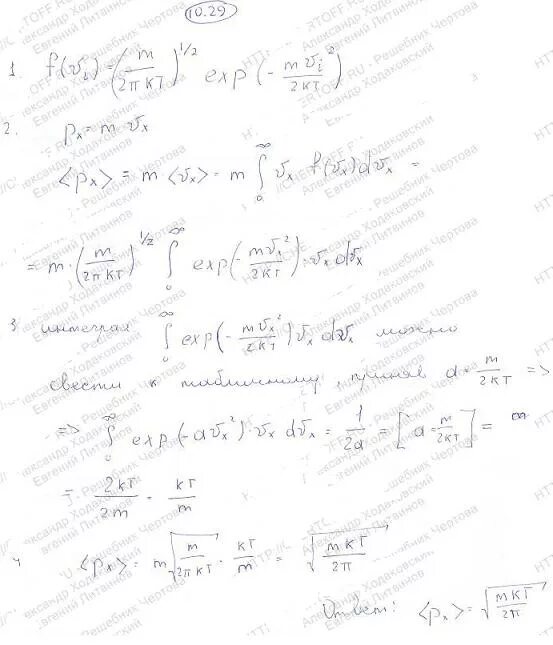 10.29
1. f(v_i) = (m/2πkT)^1/2 exp(-mv_i²/2kT)
2. p_x = m v_x
<p_x> = m <v_x> = m ∫₀^∞ v_x f(v_x) dv_x =
= m · (m/2πkT)^1/2 ∫₀^∞ exp(-mv_x²/2kT) · v_x dv_x
3. интеграл ∫₀^∞ exp(-mv_x²/2kT) v_x dv_x можно
свести к табличному, приняв a = m/2kT =>
=> ∫₀^∞ exp(-av_x²) · v_x dv_x = 1/2a = [a = m/2kT] =
= 2kT/2m = kT/m
4 <p_x> = m √(m/2πkT) · kT/m = √(mkT/2π)
Ответ: <p_x> = √(mkT/2π)
Решебник Чертова
Александр Ходаковский
Евгений Литвинов